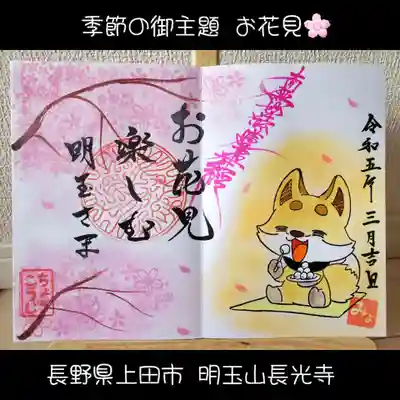 季節の御主題 お花見🌸
お花見
楽しむ
明玉さま
ちょ
こうじ
令和五年 三月吉日
みょ
長野県上田市 明玉山長光寺